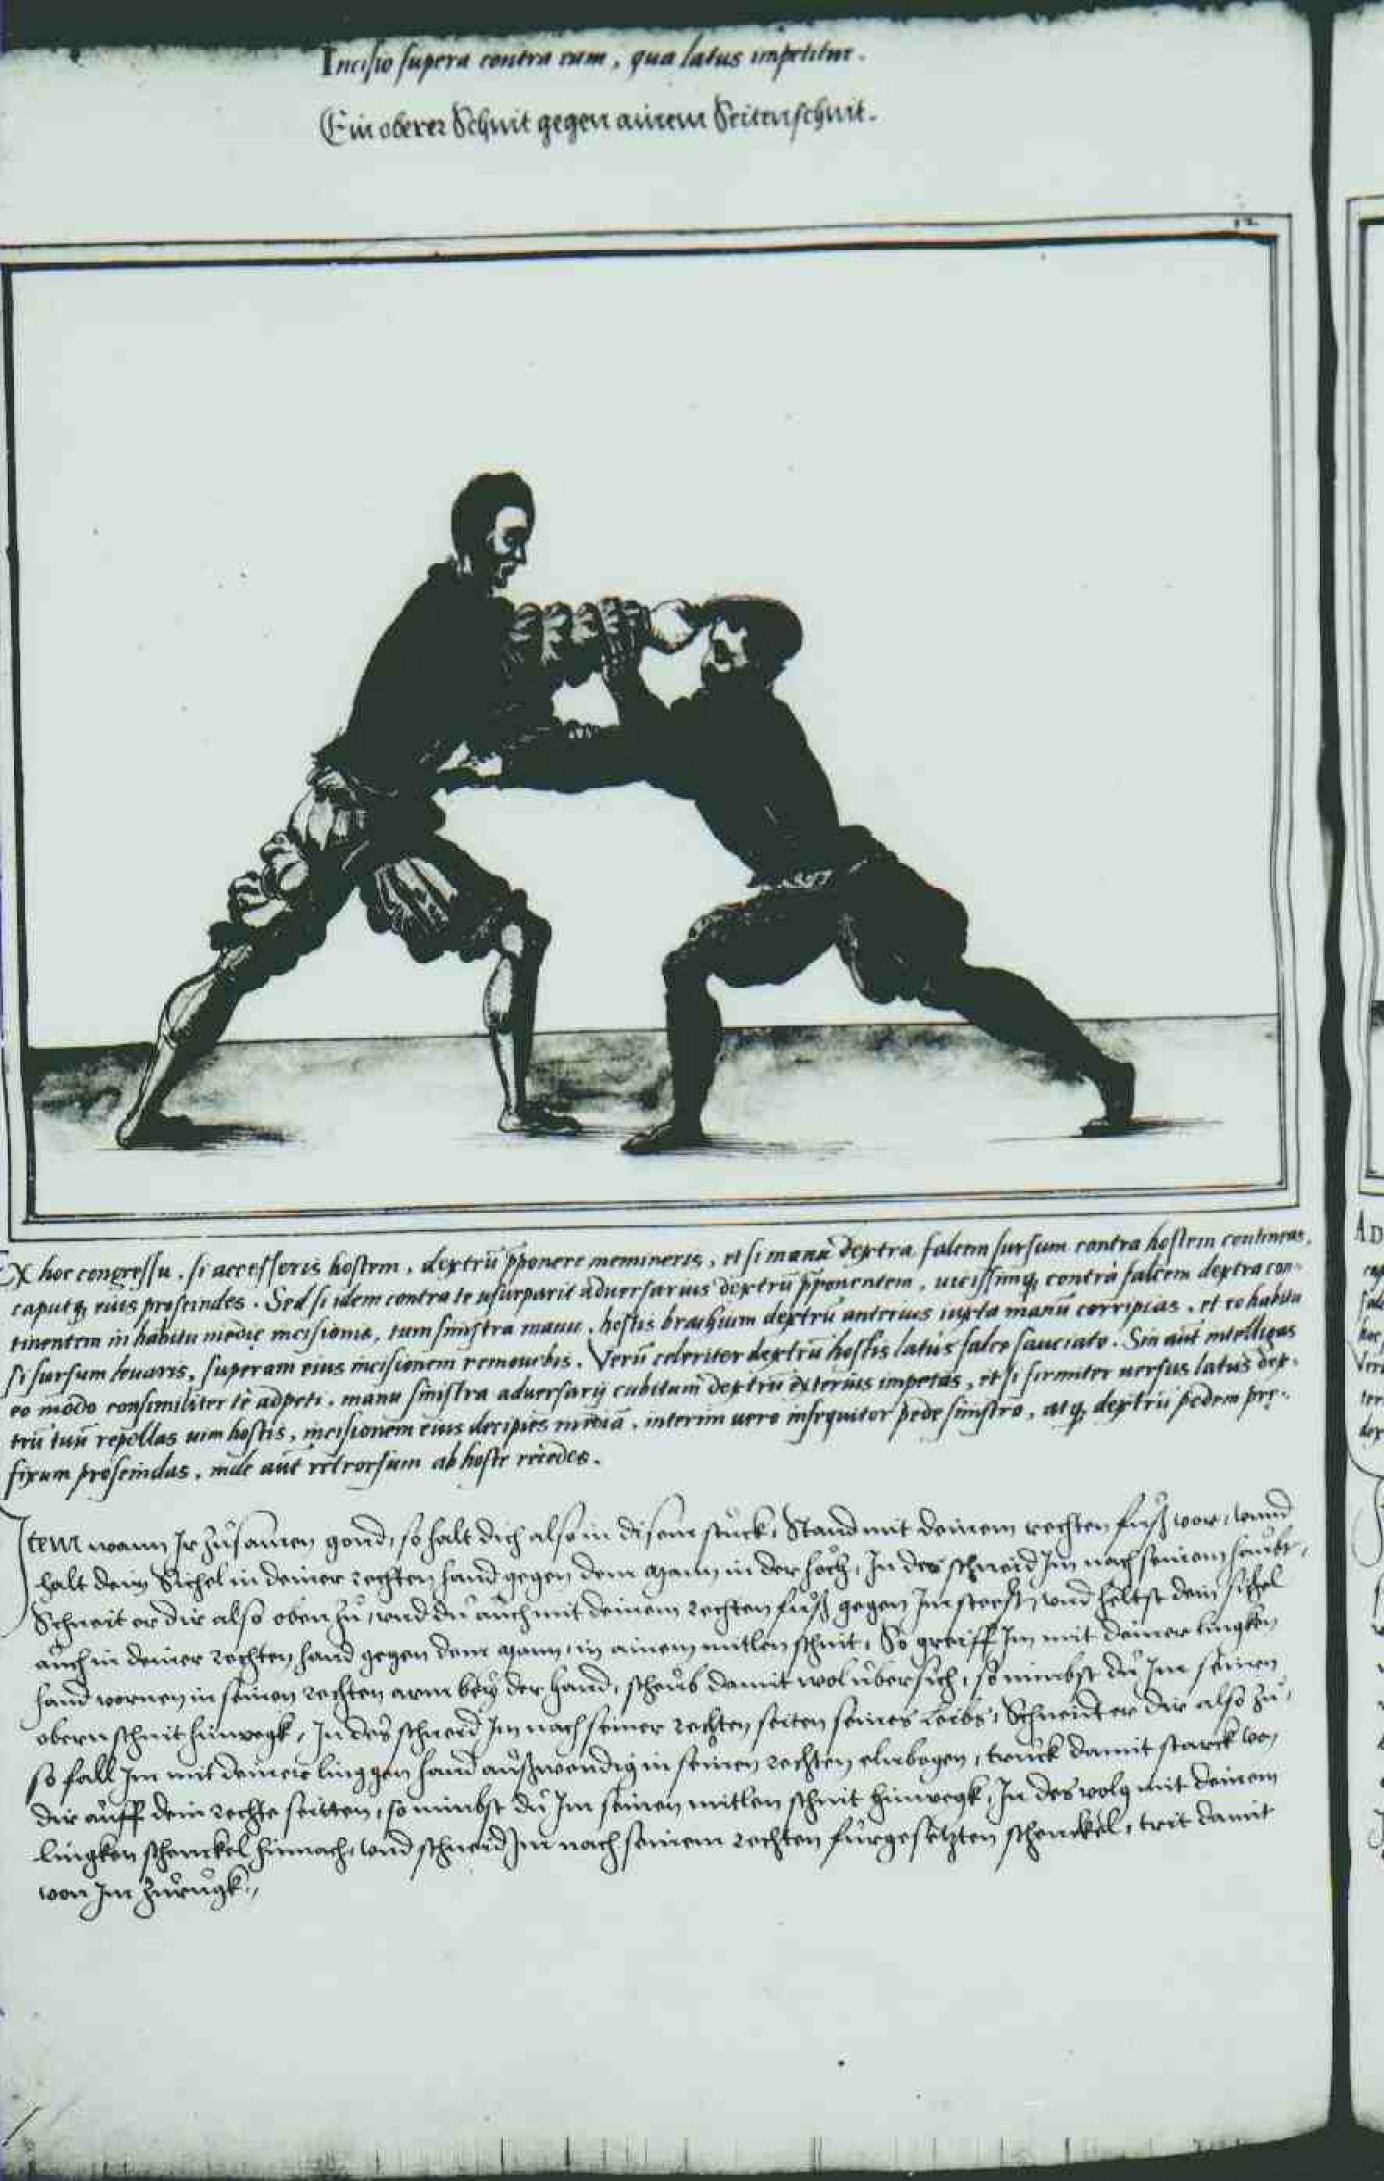 Incisio supera contra eam, qua latus impetitur.
Ein oberer Schnit gegen ainem Seitenschnit.
12
Ex hoc congressu, si accesseris hostem, dextrũ p̃ponere memineris, et si manu dextra falcem sursum contra hostem contineas,
caputq; eius proscindes. Sed si idem contra te usurparit adversarius dextrũ p̃ponentem, vicissimq; contra falcem dextra con-
tinentem in habitu medię incisionis, tum sinistra manu, hostis brachium dextrũ anterius iuxta manũ corripias, et eo habitu
si sursum levaris, superam eius incisionem removebis. Verũ celeriter dextrũ hostis latus falce sauciato. Sin aũt intelligas
eo modo consimiliter te adpeti, manu sinistra adversarij cubitum dextrũ exterius impetas, et si firmiter versus latus dex-
trũ tuũ repellas vim hostis, incisionem eius decipies mediã, interim vero insequitor pede sinistro, atq; dextrũ pedem prę-
fixum proscindas, inde aũt retrorsum ab hoste recedes.
Item wann Ir zůsamen gond, so halt dich also in disem stuck, Stand mit deinem rechten fůß vor, vnnd
halt dein Sichel in deiner rechten hand gegen dem Mann in der höch, In des schneid Im nach seinem haubt,
Schneit er dir also oben zů, vnd du auch mit deinem rechten fůß gegen Im steest, vnd heltst dein sichel
auch in deiner rechten hand gegen dem Mann in ainem mitlen schnit, So greiff Im mit deiner lingken
hand vornen in seinen rechten arm bey der hand, scheub damit wol übersich, so nimbst du Im seinen
obern schnit hinwegk, In des schneid Im nach seiner rechten seiten seines Leibs, Schneidt er dir also zů,
so fall Im mit deiner linggen hand außwendig in seinen rechten elnbogen, truck damit starck von
dir auff dein rechte seitten, so nimbst du Im seinen mitlen schnit hinwegk, In des volg mit deinem
lingken schenckel hinnach, vnd schneid Im nach seinem rechten fürgesetzten schenckel, trit damit
von Im zurugk.